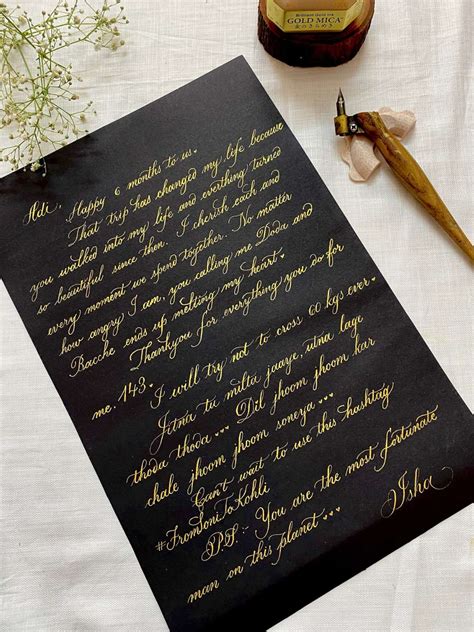 Brilliant shine ink
GOLD MICA
金のきらめき
Adi,
Happy 6 months to us.
That trip has changed my life because
you walked into my life and everthing turned
so beautiful since then. I cherish each and
every moment we spend together. No matter
how angry I am, you calling me Doda and
Bacche ends up melting my heart♥
Thankyou for everything you do for
me. 143.♥
I will try not to cross 60 kgs ever.
Jitna tu milta jaaye, utna lage
thoda thoda ♥♥♥ Dil jhoom jhoom kar
chale jhoom jhoom soneya ♥♥♥
Can't wait to use this hashtag
#FromSoniToKohli
P.S:- You are the most fortunate
man on this planet ♥♥♥
Isha